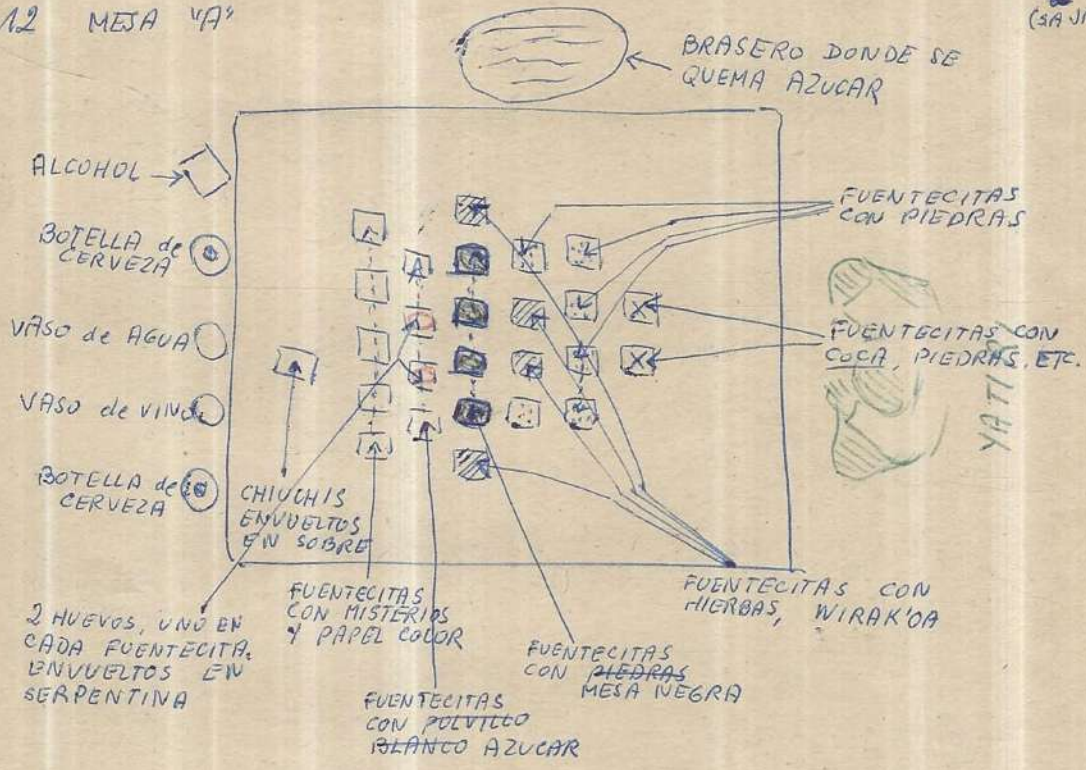 12 MESA "A"
BRASERO DONDE SE
QUEMA AZUCAR
ALCOHOL
BOTELLA de
CERVEZA
VASO de AGUA
VASO de VINO
BOTELLA de
CERVEZA
FUENTECITAS
CON PIEDRAS
FUENTECITAS CON
COCA, PIEDRAS, ETC.
YATIRI
CHIUCHIS
ENVUELTOS
EN SOBRE
2 HUEVOS, UNO EN
CADA FUENTECITA.
ENVUELTOS EN
SERPENTINA
FUENTECITAS
CON MISTERIOS
Y PAPEL COLOR
FUENTECITAS
CON POLVILLO
BLANCO AZUCAR
FUENTECITAS
CON PIEDRAS
MESA NEGRA
FUENTECITAS CON
HIERBAS, WIRAK'OA